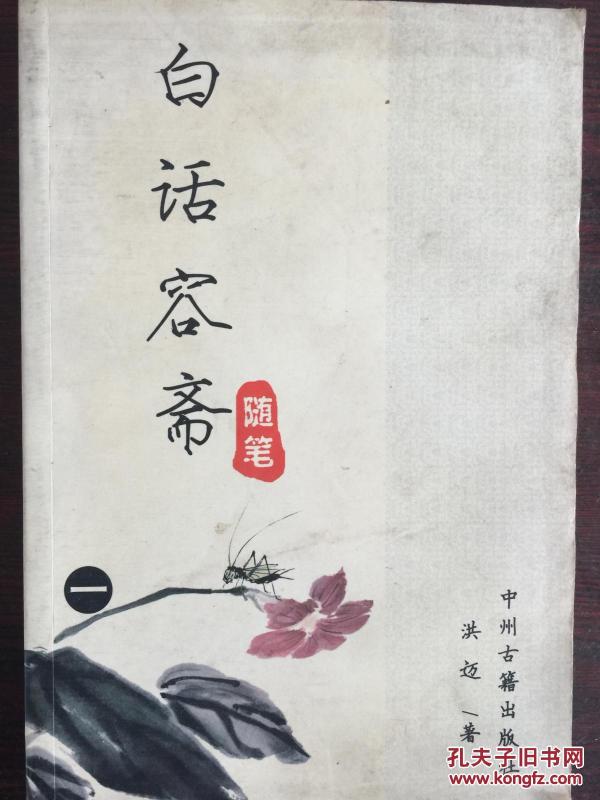 白话容斋
随笔
一
中州古籍出版社
洪迈/著
孔夫子旧书网
www.kongfz.com